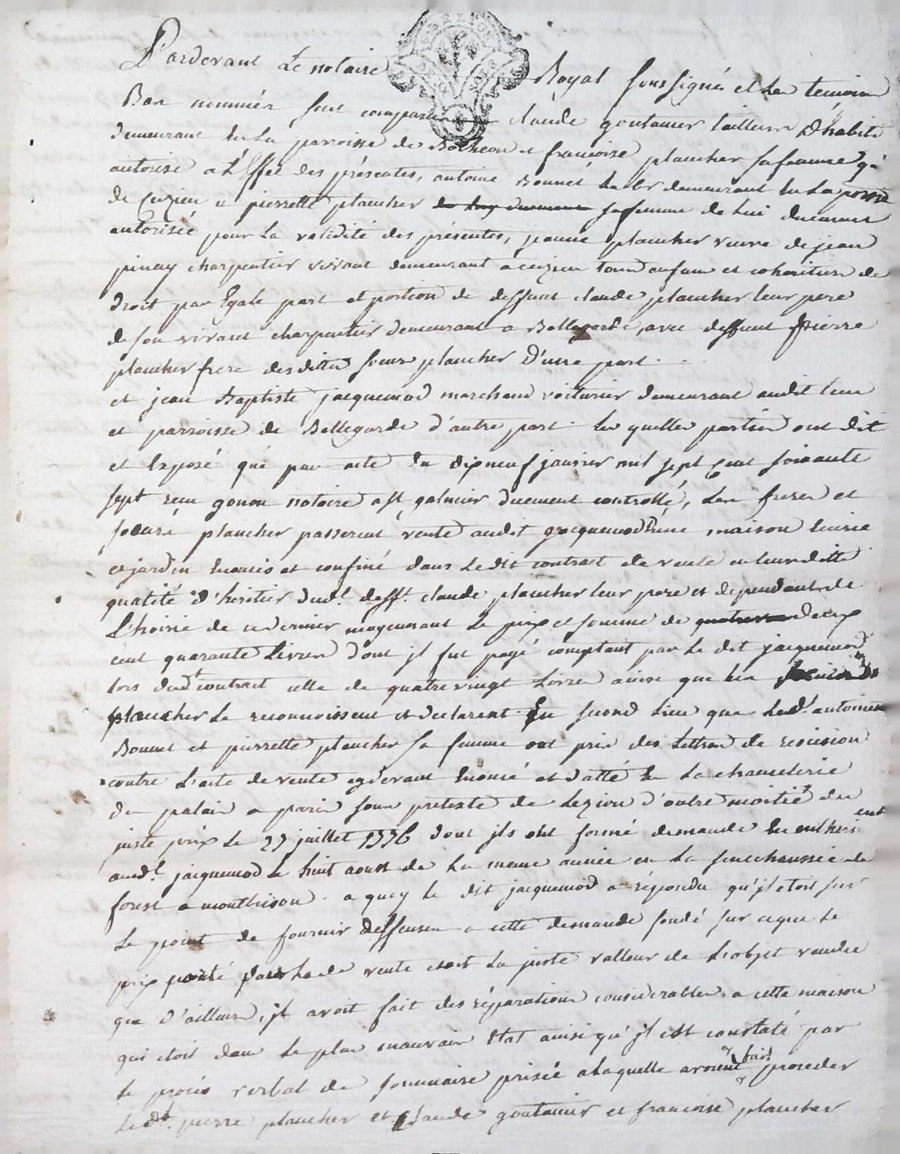 Pardevant Le notaire Royal soussigné et les temoins
Bas nommés sont comparus claude goutanier tailleur d'habit
demeurant en La parroisse de et françoise plancher sa femme
autorisé a L'Effet des présentes, antoine Bonnet demeurant en La
de Cuzieu et pierrette plancher sa femme de Lui duement
autorisée pour La validité des présentes, jeanne plancher veuve de jean
pinay charpentier vivant demeurant a cuzieu tous enfans et cohéritiers de
droit par Egale part et portion de deffunt claude plancher leur pere
de son vivant charpentier demeurant a Bellegarde, avec deffunt Pierre
plancher frere desdittes soeurs plancher D'une part.
et jean Baptiste jacquemod marchand voiturier demeurant audit lieu
et parroisse de Bellegarde d'autre part. Les quelles parties ont dit
et Exposé que par acte du dix neuf janvier mil sept Cent soixante
sept reçu gonon notaire a st galmier duement controllé, Les freres et
soeurs plancher passerent vente audit jacquemod d'une maison Ecurie
et jardin Enoncés et confiné dans Le dit contrat de vente en leurditte
qualité d'heritier dud.t deff.t claude plancher leur pere et dependant de
L'hoirie de ce dernier moyennant Le prix et somme de deux
cent quarante Livres dont jl fut payé comptant par Le dit jacquemod
lors dud.t contrat celle de quatre vingt Livre ainsi que les
plancher Le reconnoissent et declarent En second Lieu que Led.t antoine
Bonnet et pierrette plancher sa femme ont pris des Lettres de rescision
contre L'acte de vente cydevant Enoncé et datté En La chancelerie
du palais a paris sous pretexte de Lezion d'outre moitié du
juste prix Le 27 juillet 1776 dont jls ont formé demande En
aud.t jacquemod Le huit aoust de La meme année en La senechaussée de
forest a montbrison. a quoy Le dit jacquemod a répondu qu'jl etoit sur
Le point de fournir deffenses a cette demande fondé sur ceque Le
prix porté de vente etoit La juste valleur de L'objet vendu
que d'ailleurs jl avoit fait des réparations considerables a cette maison
qui etoit dans Le plus mauvais Etat ainsi qu'jl est constaté par
Le procés verbal de sommaire prisée a Laquelle avoient fait proceder
Le d.t pierre plancher et Claude goutanier et francoise plancher